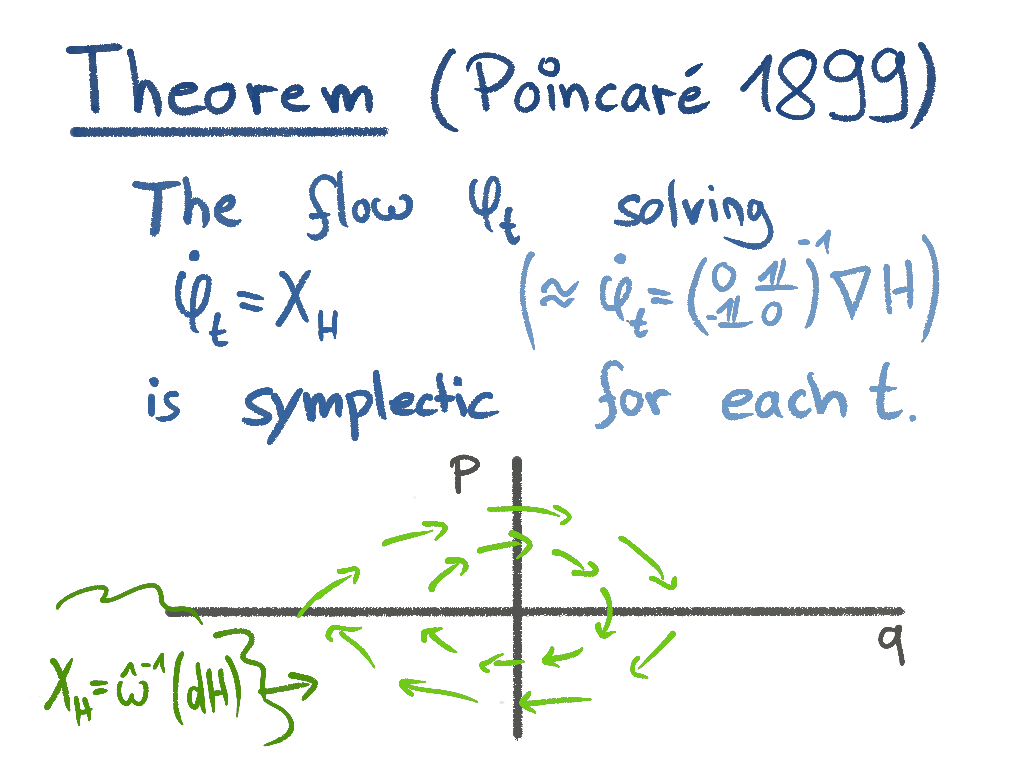 Theorem (Poincaré 1899)
The flow φ_t solving
φ̇_t = X_H (≈ φ̇_t = (0 𝟙 -𝟙 0)⁻¹ ∇H)
is symplectic for each t.
p
q
X_H = ω̂⁻¹(dH)